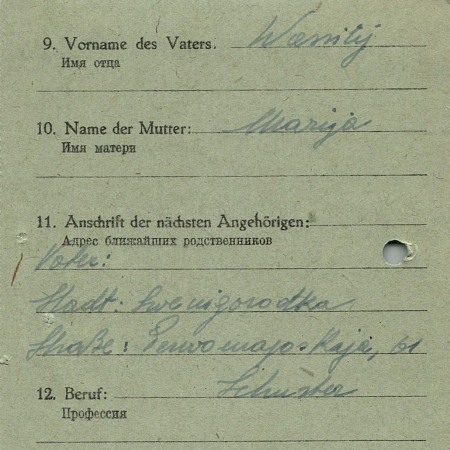 9. Vorname des Vaters. Wassilij
Имя отца
10. Name der Mutter: Marija
Имя матери
11. Anschrift der nächsten Angehörigen:
Адрес ближайших родственников
Vater:
Stadt: Swenigorodka
Straße: Perwomajs-Kaja, 61
12. Beruf: Schuster
Профессия